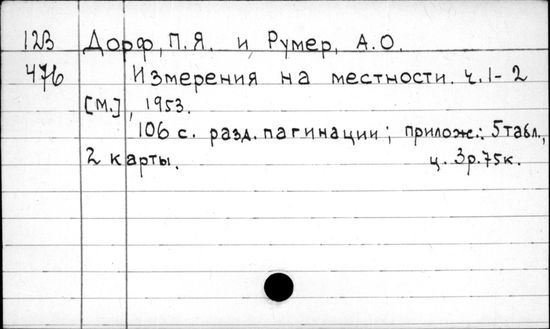 12В Дорф, П.Я. и Румер, А.О.
476 Измерения на местности. ч.1-2
[М.], 1953.
106 с. разд. пагинации; прилож.: 5 табл.,
2 карты. ц. 3р.75к.